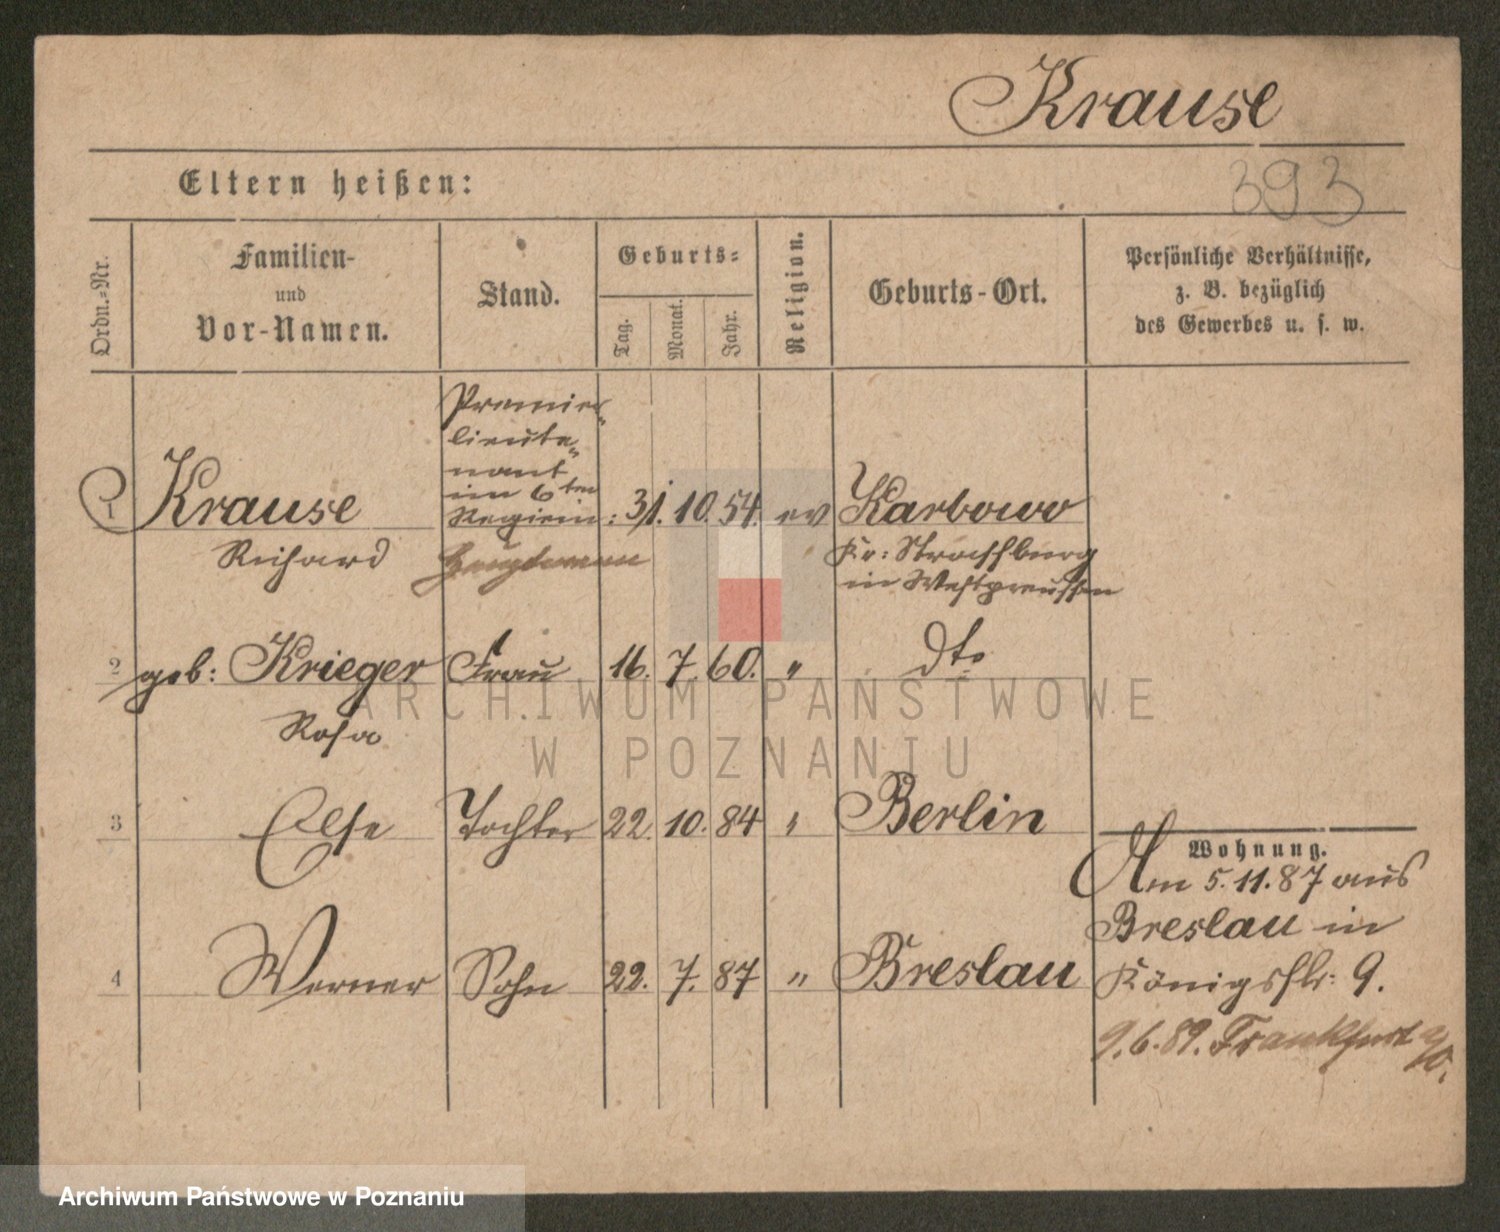 Krause
393
Eltern heißen:
Ordn.=Nr.
Familien-
und
Vor-Namen.
Stand.
Geburts=
Tag.
Monat.
Jahr.
Religion.
Geburts-Ort.
Persönliche Verhältnisse,
z. B. bezüglich
des Gewerbes u. s. w.
Premier-
lieute-
nant
im 6ten
Regim:
1 Krause 31. 10. 54. ev Karbowo
Richard Hauptmann Kr: Strassburg
in Westpreussen
2 geb: Krieger Frau 16. 7. 60. " dto
Rosa
3 Else Tochter 22. 10. 84 " Berlin
Wohnung.
Am 5.11.87 aus
Breslau in
4 Werner Sohn 22. 7. 87 " Breslau Königsstr: 9.
9.6.89. Frankfurt a/O.
ARCHIWUM PAŃSTWOWE
W POZNANIU
Archiwum Państwowe w Poznaniu